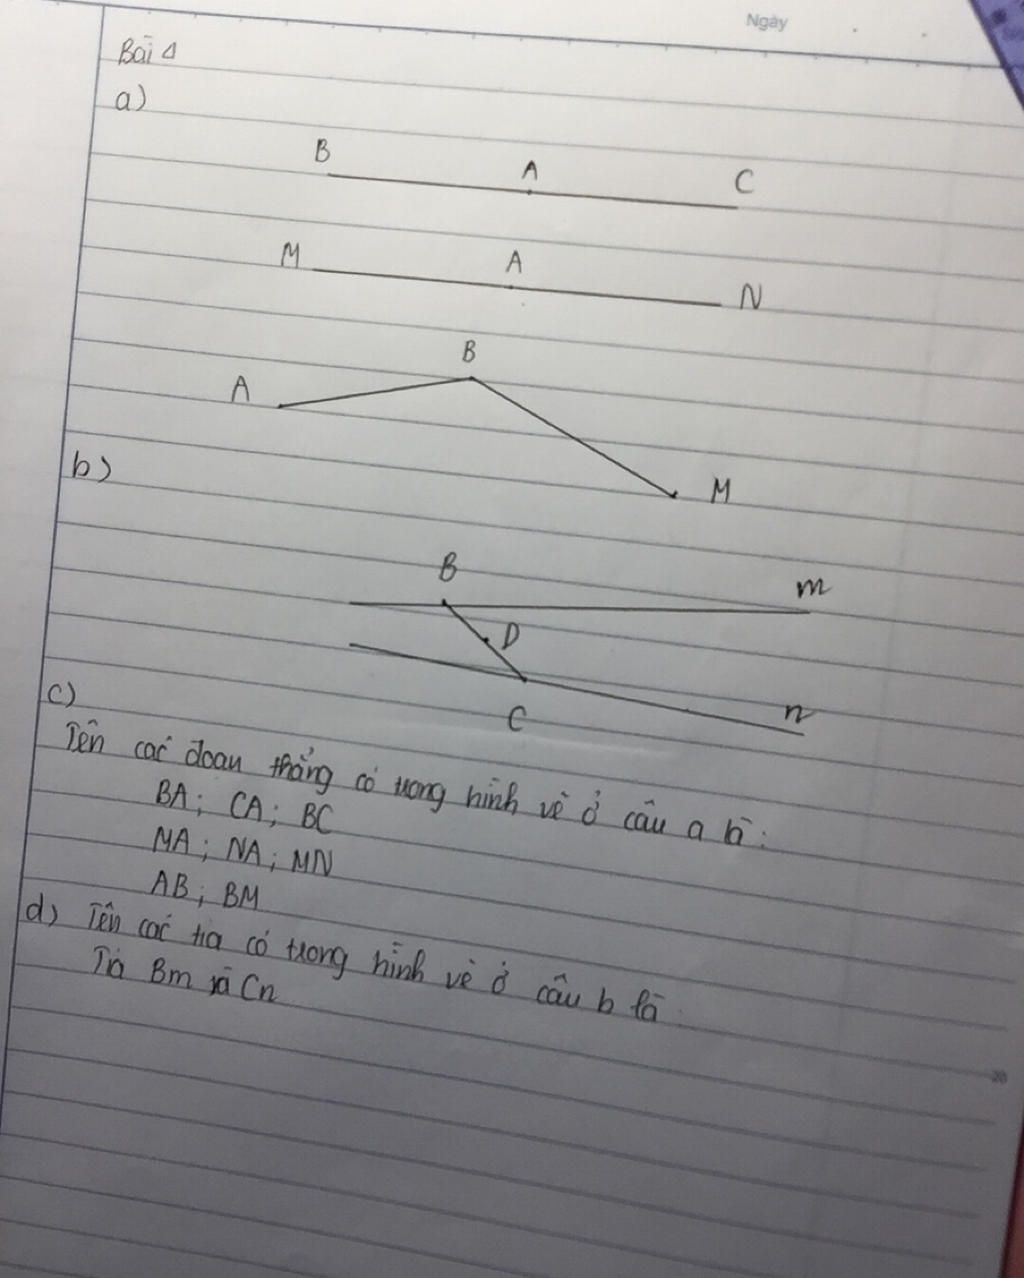 Ngày
Bài 4
a)
B A C
M A N
B
A
M
b)
B m
D
C n
c)
Tên các đoạn thẳng có trong hình vẽ ở câu a là:
BA; CA; BC
MA; NA; MN
AB; BM
d) Tên các tia có trong hình vẽ ở câu b là
Tia Bm và Cn